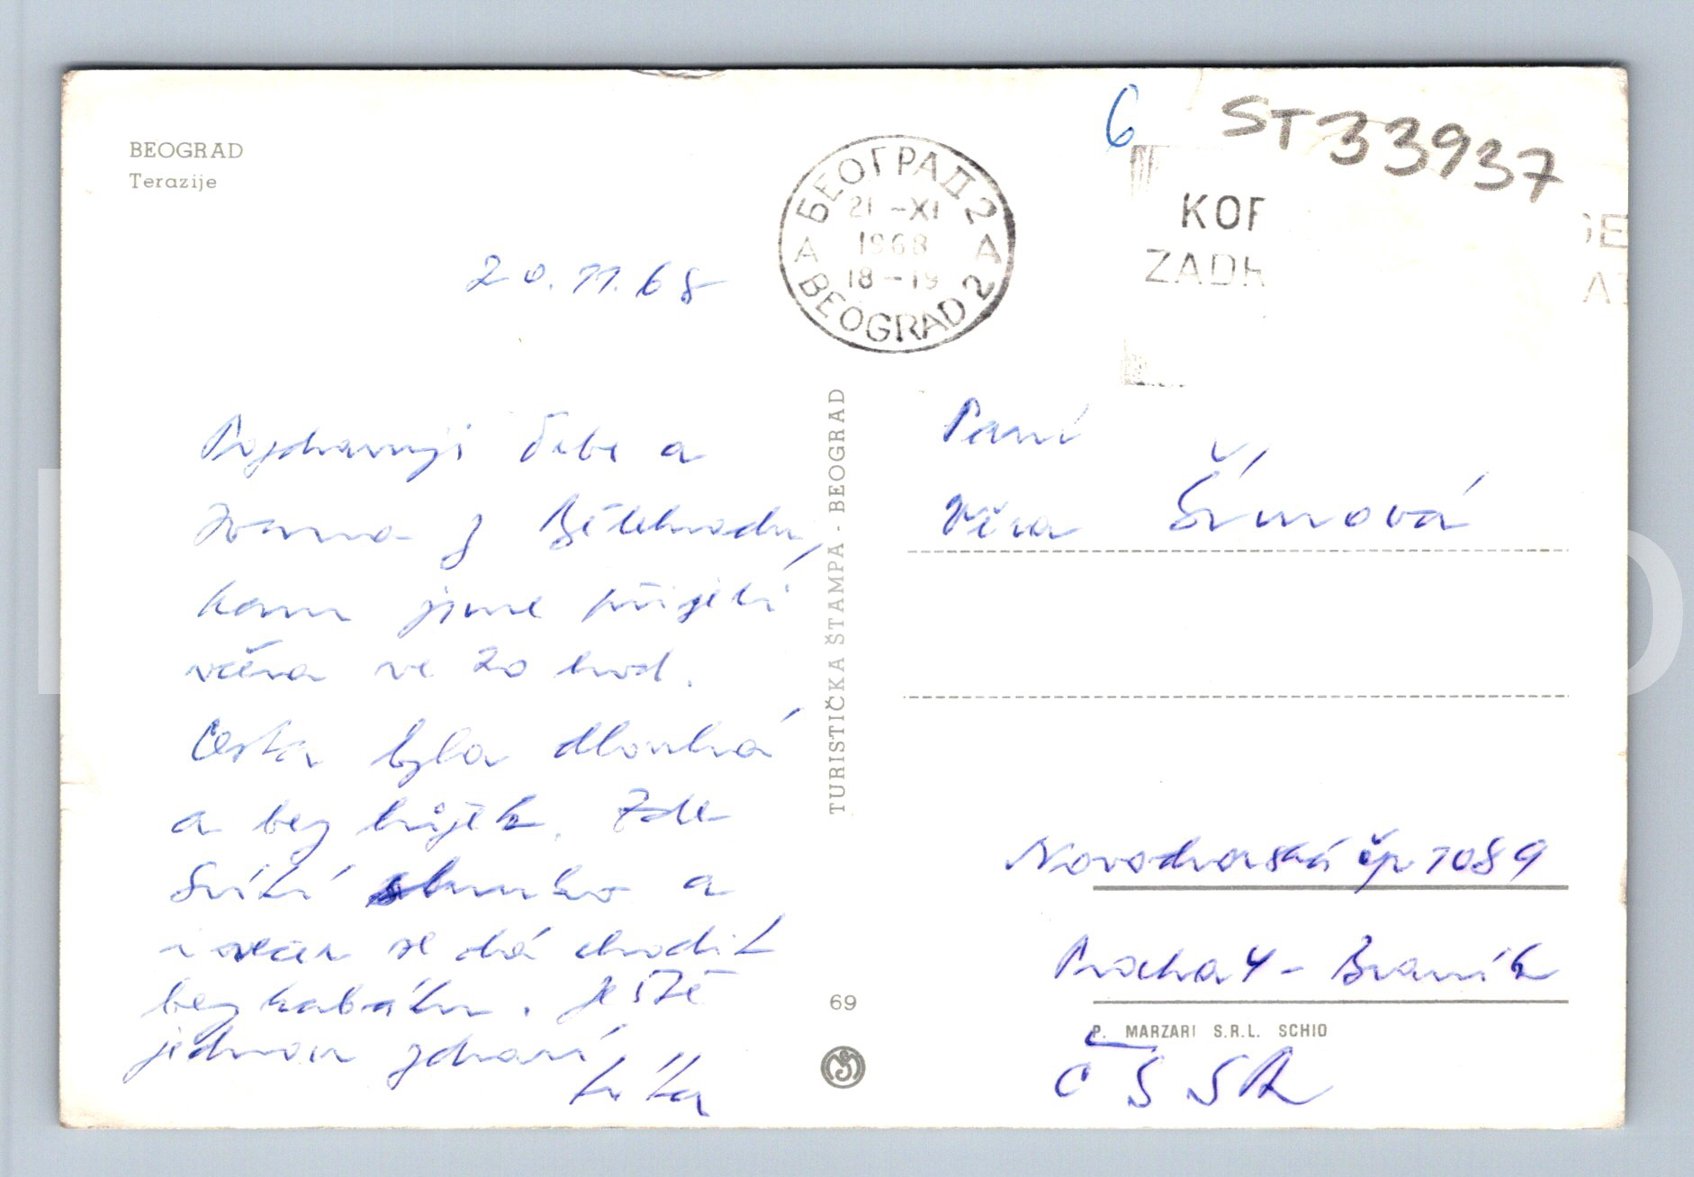 BEOGRAD
Terazije
6
ST33937
БЕОГРАД 2
21 -XI
1968
18-19
A A
BEOGRAD 2
KOR
ZADR
20.11.68
Pozdravuji Tebe a
Ivana z Bělehradu,
kam jsme přijeli
včera ve 20 hod.
Cesta byla dlouhá
a bez hájek. Zde
svítí slunko a
i večer se dá chodit
bez kabátu. Ještě
jednou zdraví
TURISTIČKA ŠTAMPA - BEOGRAD
69
Paní
Věra Šímová
Novodvorská čp 1089
Praha 4 - Braník
P. MARZARI S.R.L. SCHIO
ČSSR